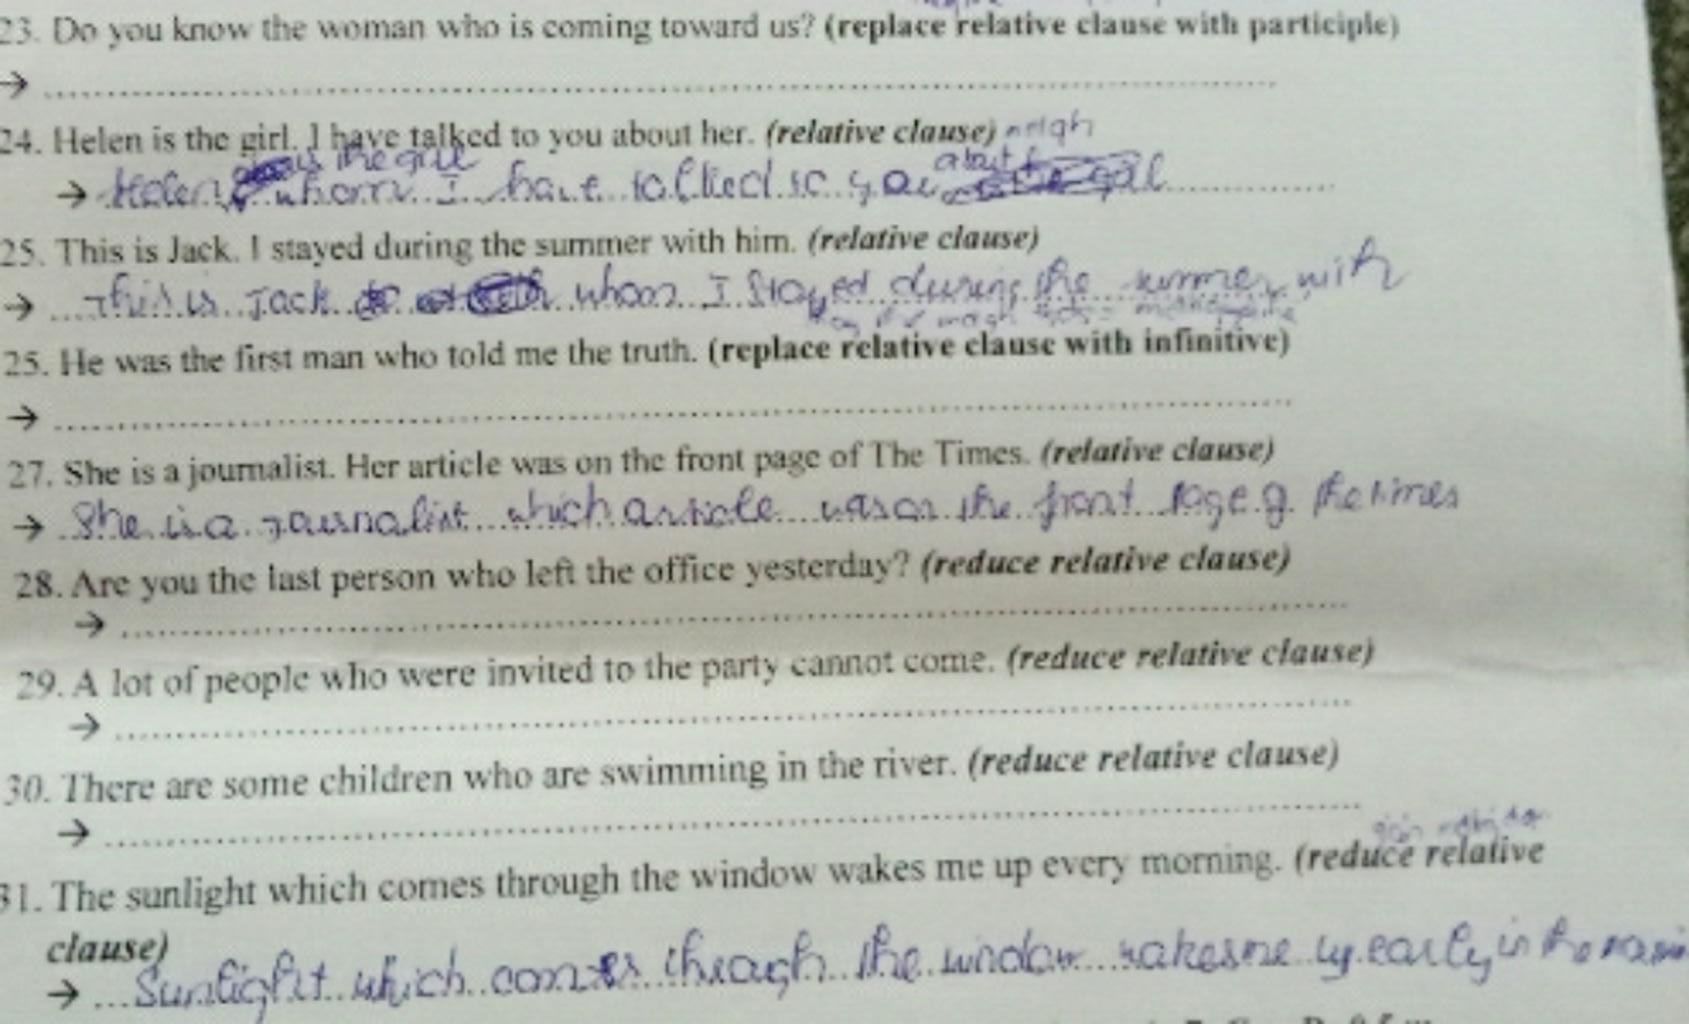 23. Do you know the woman who is coming toward us? (replace relative clause with participle)
→
24. Helen is the girl. I have talked to you about her. (relative clause)
is the girl about
→ Helen whom I have talked to you
25. This is Jack. I stayed during the summer with him. (relative clause)
→ This is Jack whom I stayed during the summer with
25. He was the first man who told me the truth. (replace relative clause with infinitive)
→
27. She is a journalist. Her article was on the front page of The Times. (relative clause)
→ She is a journalist which article was on the front page of the times
28. Are you the last person who left the office yesterday? (reduce relative clause)
→
29. A lot of people who were invited to the party cannot come. (reduce relative clause)
→
30. There are some children who are swimming in the river. (reduce relative clause)
→
31. The sunlight which comes through the window wakes me up every morning. (reduce relative
clause)
→ Sunlight which comes through the window wakes me up early in the